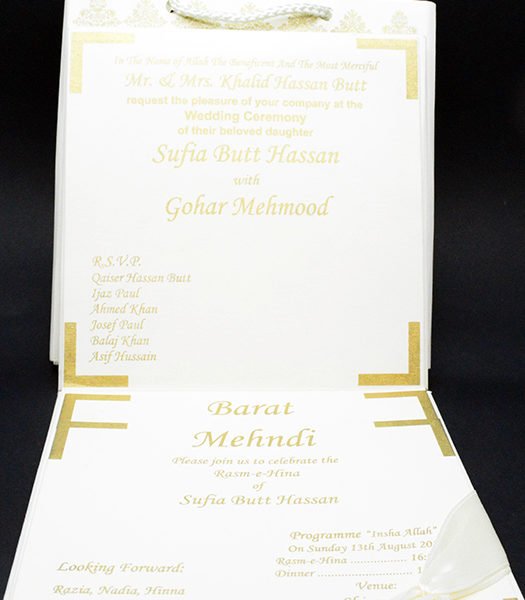 In The Name of Allah The Beneficent And The Most Merciful
Mr. & Mrs. Khalid Hassan Butt
request the pleasure of your company at the
Wedding Ceremony
of their beloved daughter
Sufia Butt Hassan
with
Gohar Mehmood
R.S.V.P.
Qaiser Hassan Butt
Ijaz Paul
Ahmed Khan
Josef Paul
Balaj Khan
Asif Hussain
Barat
Mehndi
Please join us to celebrate the
Rasm-e-Hina
of
Sufia Butt Hassan
Programme "Insha Allah"
On Sunday 13th August 20
Rasm-e-Hina .................. 16:
Dinner ............................ 1
Venue:
Looking Forward:
Razia, Nadia, Hinna